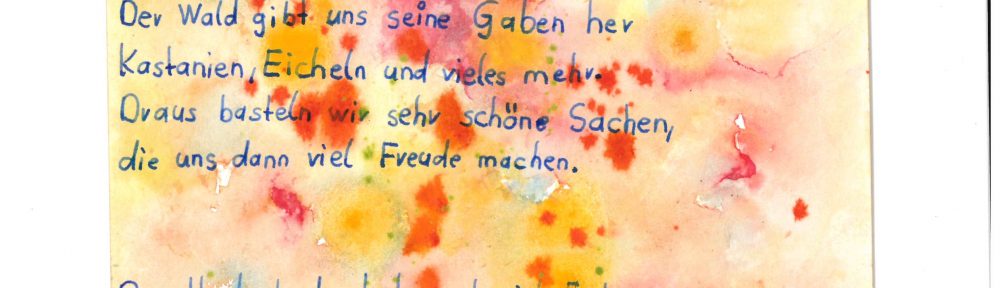 Der Wald gibt uns seine Gaben her
Kastanien, Eicheln und vieles mehr.
Draus basteln wir sehr schöne Sachen,
die uns dann viel Freude machen.